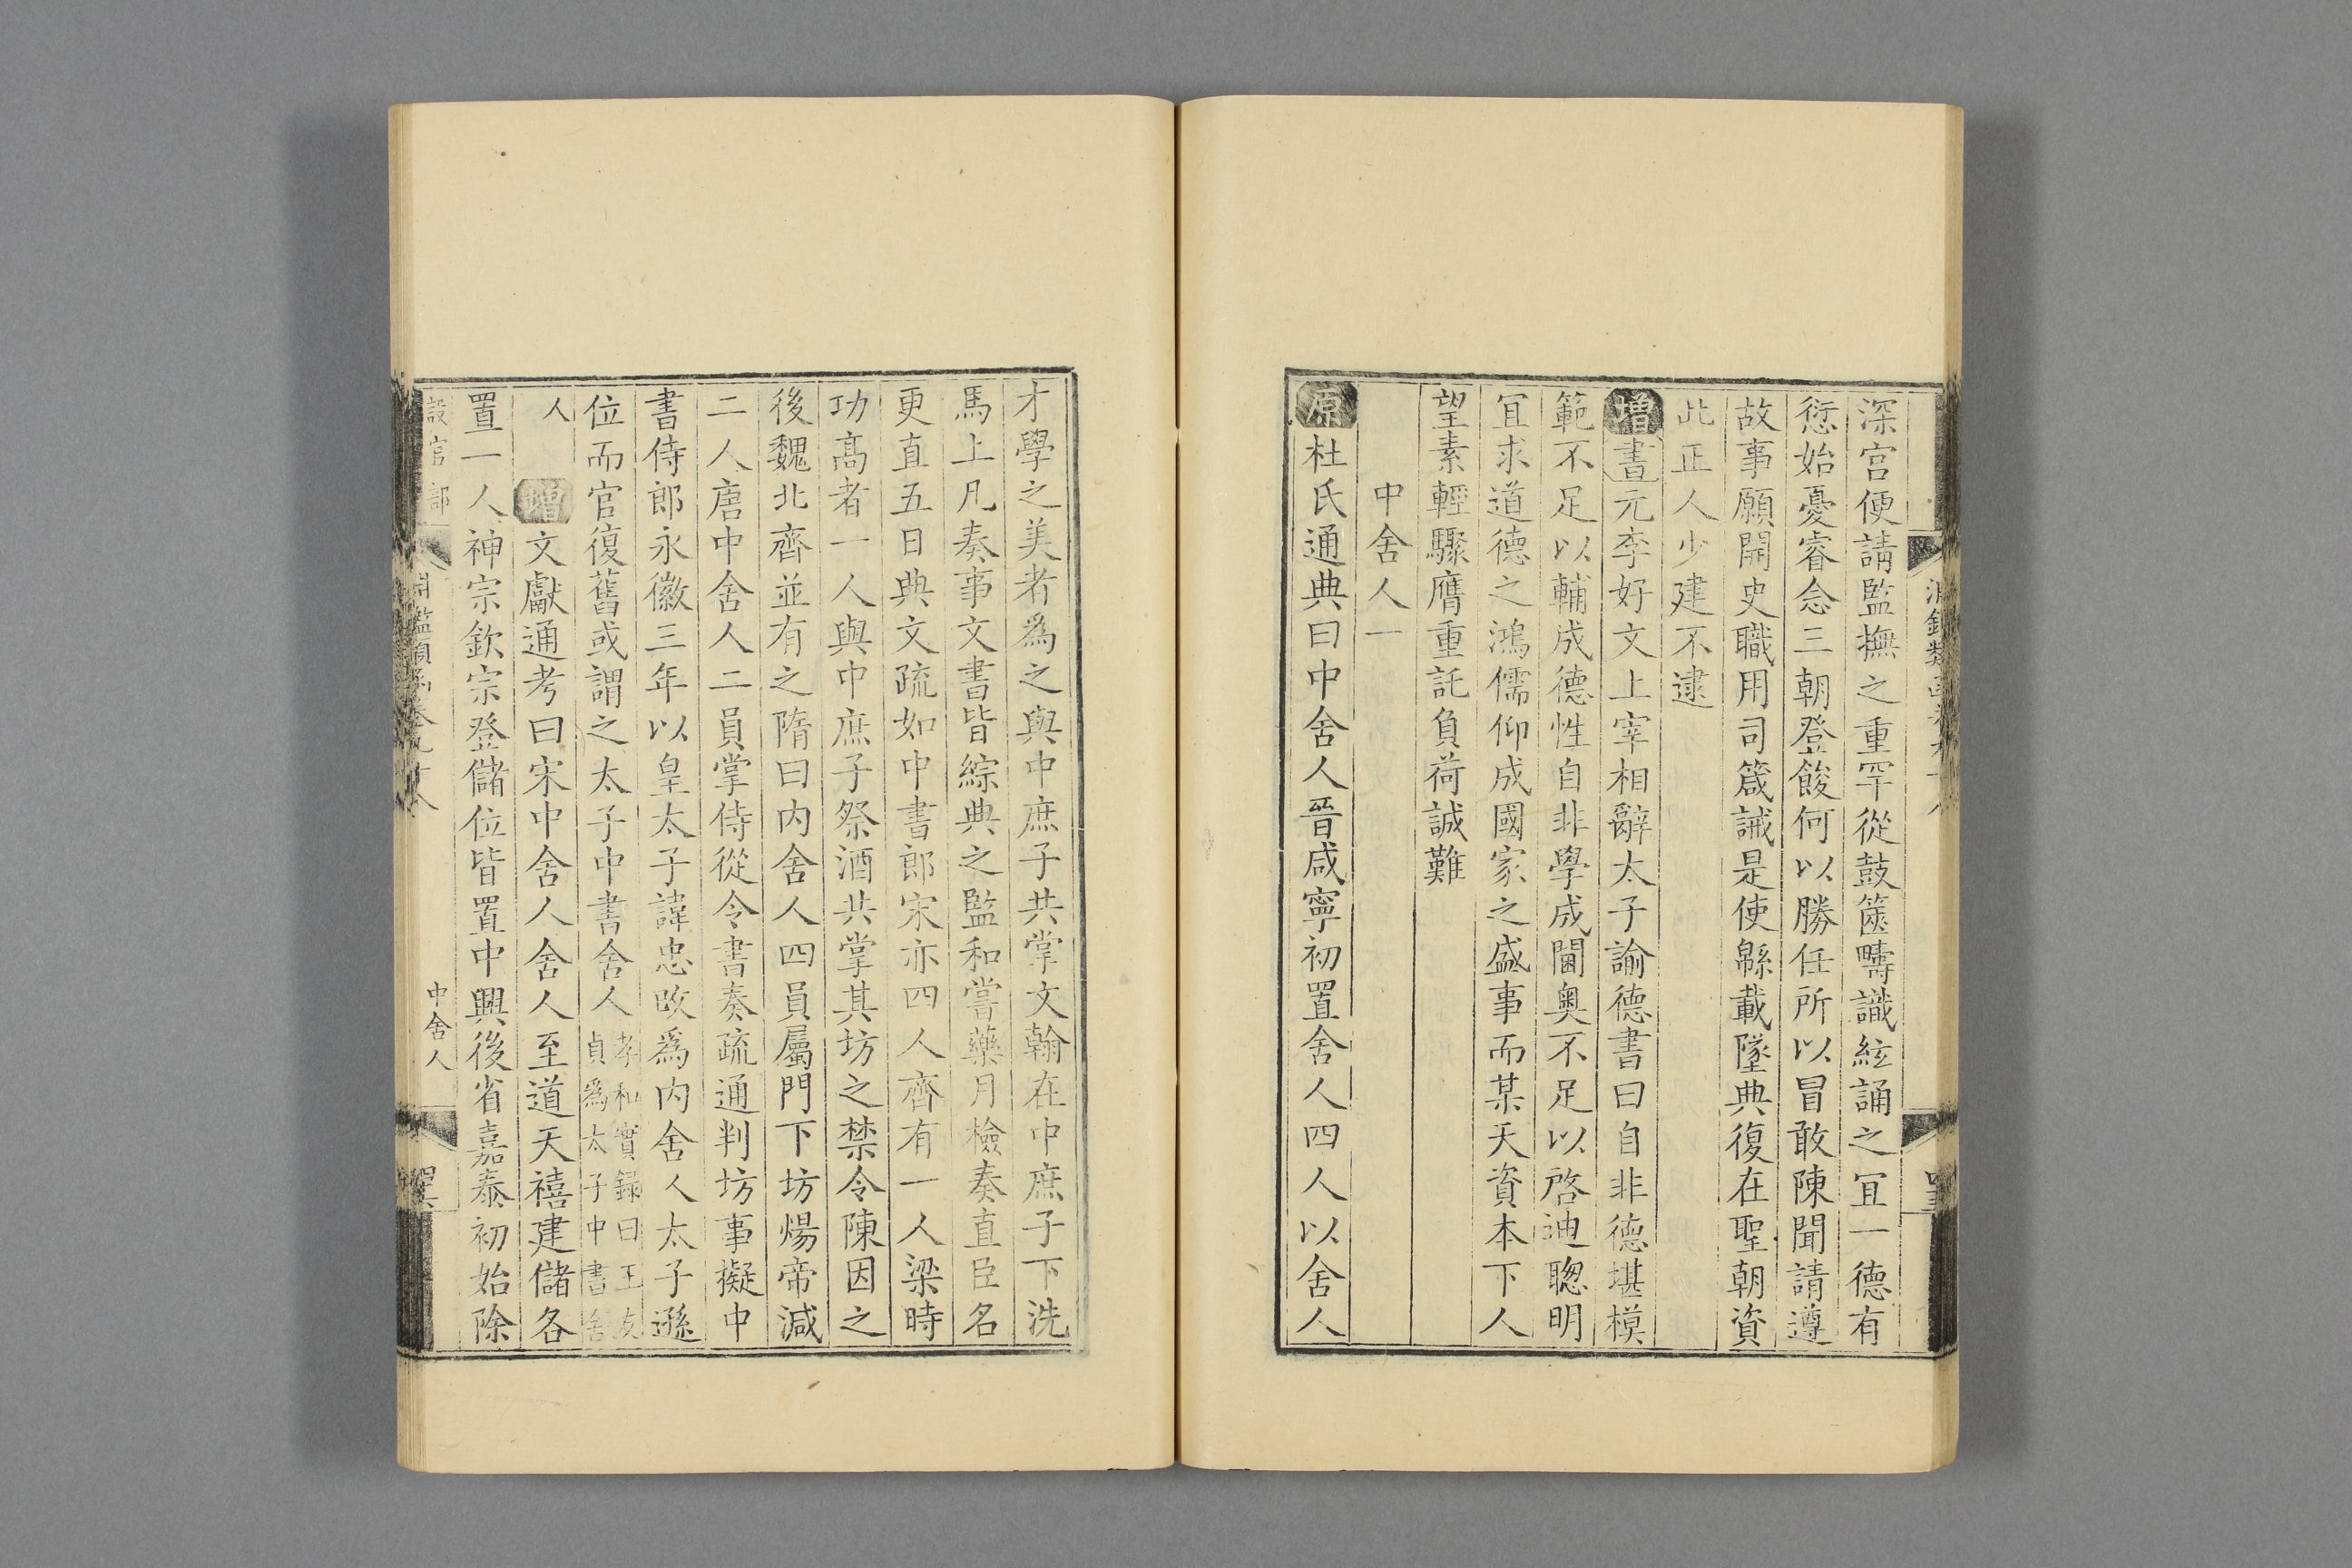 深宮便請監撫之重罕從鼓篋疇識絃誦之宜一德有
愆始憂睿念三朝登餕何以勝任所以冒敢陳聞請遵
故事願開史職用司箴誡是使緜載墜典復在聖朝資
此正人少建不逮
增書元李好文上宰相辭太子諭德書曰自非德堪模
範不足以輔成德性自非學成閫奥不足以啓迪聰明
宜求道德之鴻儒仰成國家之盛事而某天資本下人
望素輕驟膺重託負荷誠難
中舍人一
原杜氏通典曰中舍人晉咸寧初置舍人四人以舍人
才學之美者爲之與中庶子共掌文翰在中庶子下洗
馬上凡奏事文書皆綜典之監和嘗藥月檢奏直臣名
更直五日典文疏如中書郎宋亦四人齊有一人梁時
功高者一人與中庶子祭酒共掌其坊之禁令陳因之
後魏北齊並有之隋曰内舍人四員屬門下坊煬帝減
二人唐中舍人二員掌侍從令書奏疏通判坊事擬中
書侍郎永徽三年以皇太子諱忠改爲内舍人太子遜
位而官復舊或謂之太子中書舍人
孝和實録曰王友
貞爲太子中書舍
人 增文獻通考曰宋中舍人舍人至道天禧建儲各
置一人神宗欽宗登儲位皆置中興後省嘉泰初始除
設官部 淵鑑類函卷九十八 中舍人